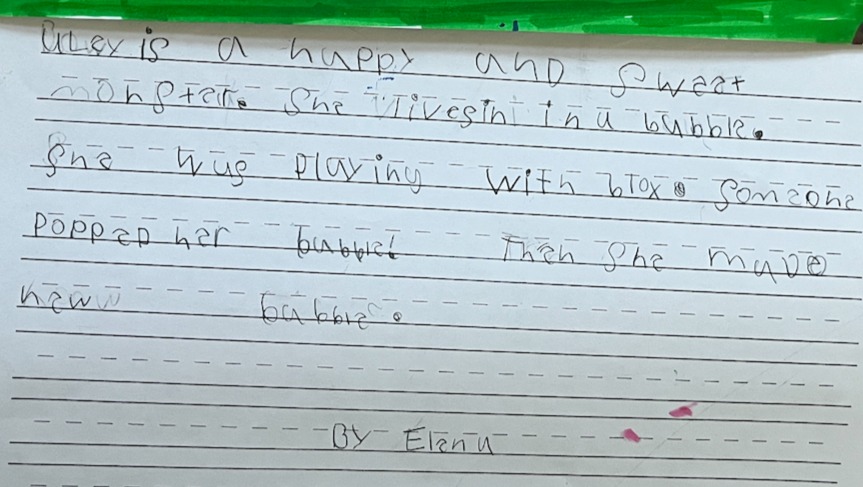 is a happy and sweet
monster. She livesin in a bubble.
She was playing with blox. Someone
popped her bubble! Then She made
new bubble.
By Elena